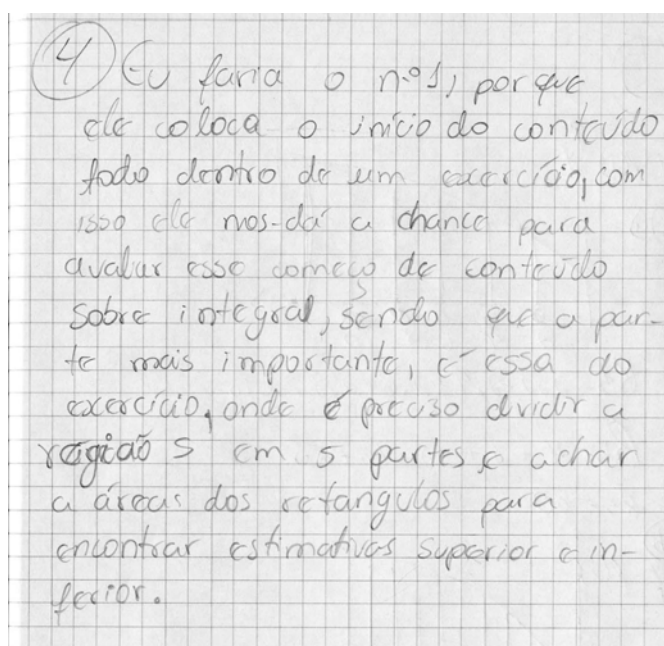 4 Eu faria o n.º 1, porque
ele coloca o início do conteúdo
todo dentro de um exercício, com
isso ele nos-dá a chance para
avaliar esse começo de conteúdo
sobre integral, sendo que a par-
te mais importante, é essa do
exercício, onde é preciso dividir a
região S em 5 partes e achar
a áreas dos retangulos para
encontrar estimativas superior e in-
ferior.